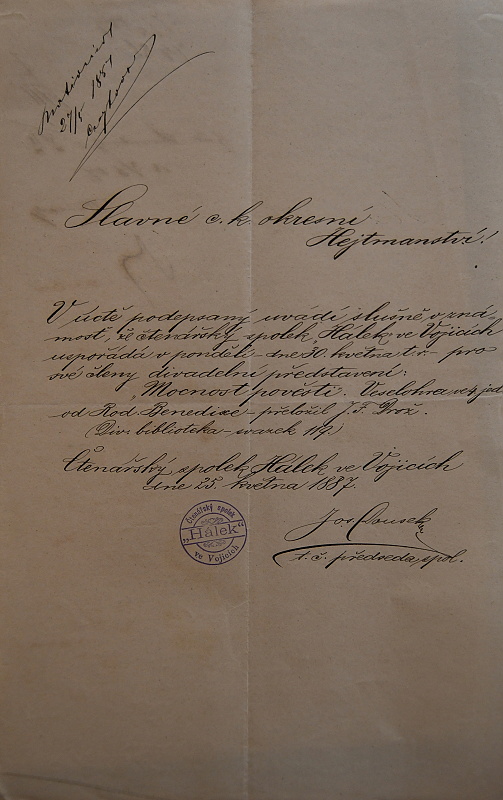 27/5 1887
Slavné c. k. okresní
Hejtmanství!
V úctě podepsaný uvádí slušně v zná-
most, že čtenářský spolek „Hálek" ve Vojicích
uspořádá v pondělí - dne 30. května t. r. - pro
své členy divadelní představení:
„Mocnost pověsti. Veselohra ve 4 jed.
od Rod. Benedixe - přeložil J. F. Drož.
(Div. biblioteka - svazek 119.)
Čtenářský spolek Hálek ve Vojicích
dne 25. května 1887.
Čtenářský spolek
„Hálek"
ve Vojicích
Jos.
t. č. předseda spol.